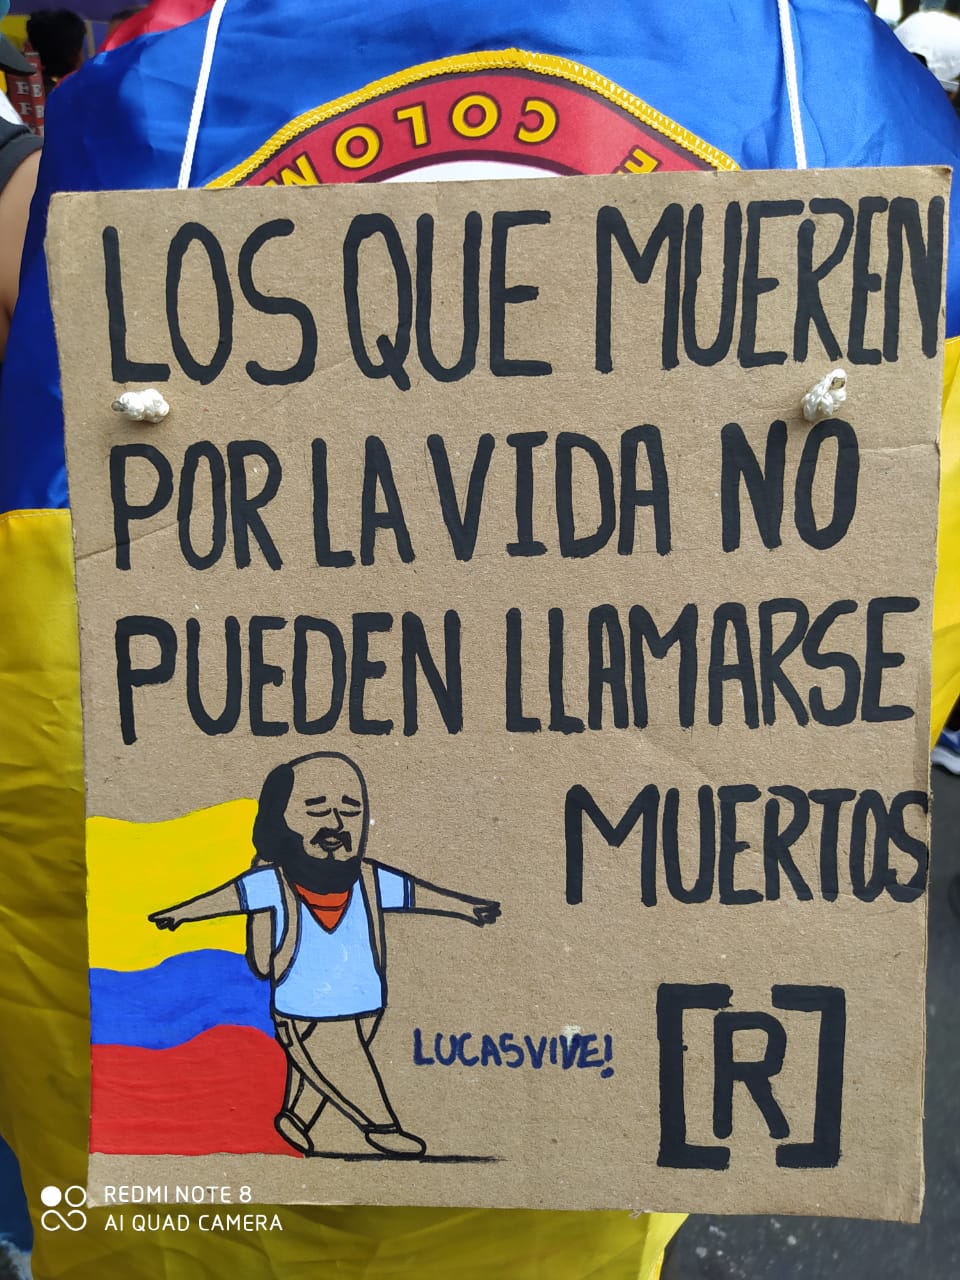 COLOM
E
LOS QUE MUEREN
POR LA VIDA NO
PUEDEN LLAMARSE
MUERTOS
LUCAS VIVE!
[R]
REDMI NOTE 8
AI QUAD CAMERA